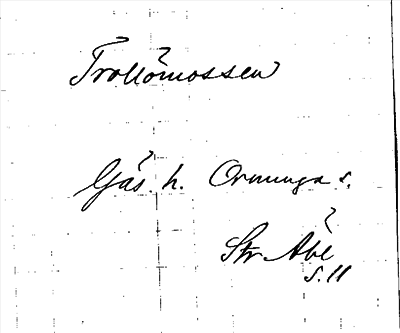 Trollömossen
Gäs. h. Ormunga s.
Str Åbe
s. 11